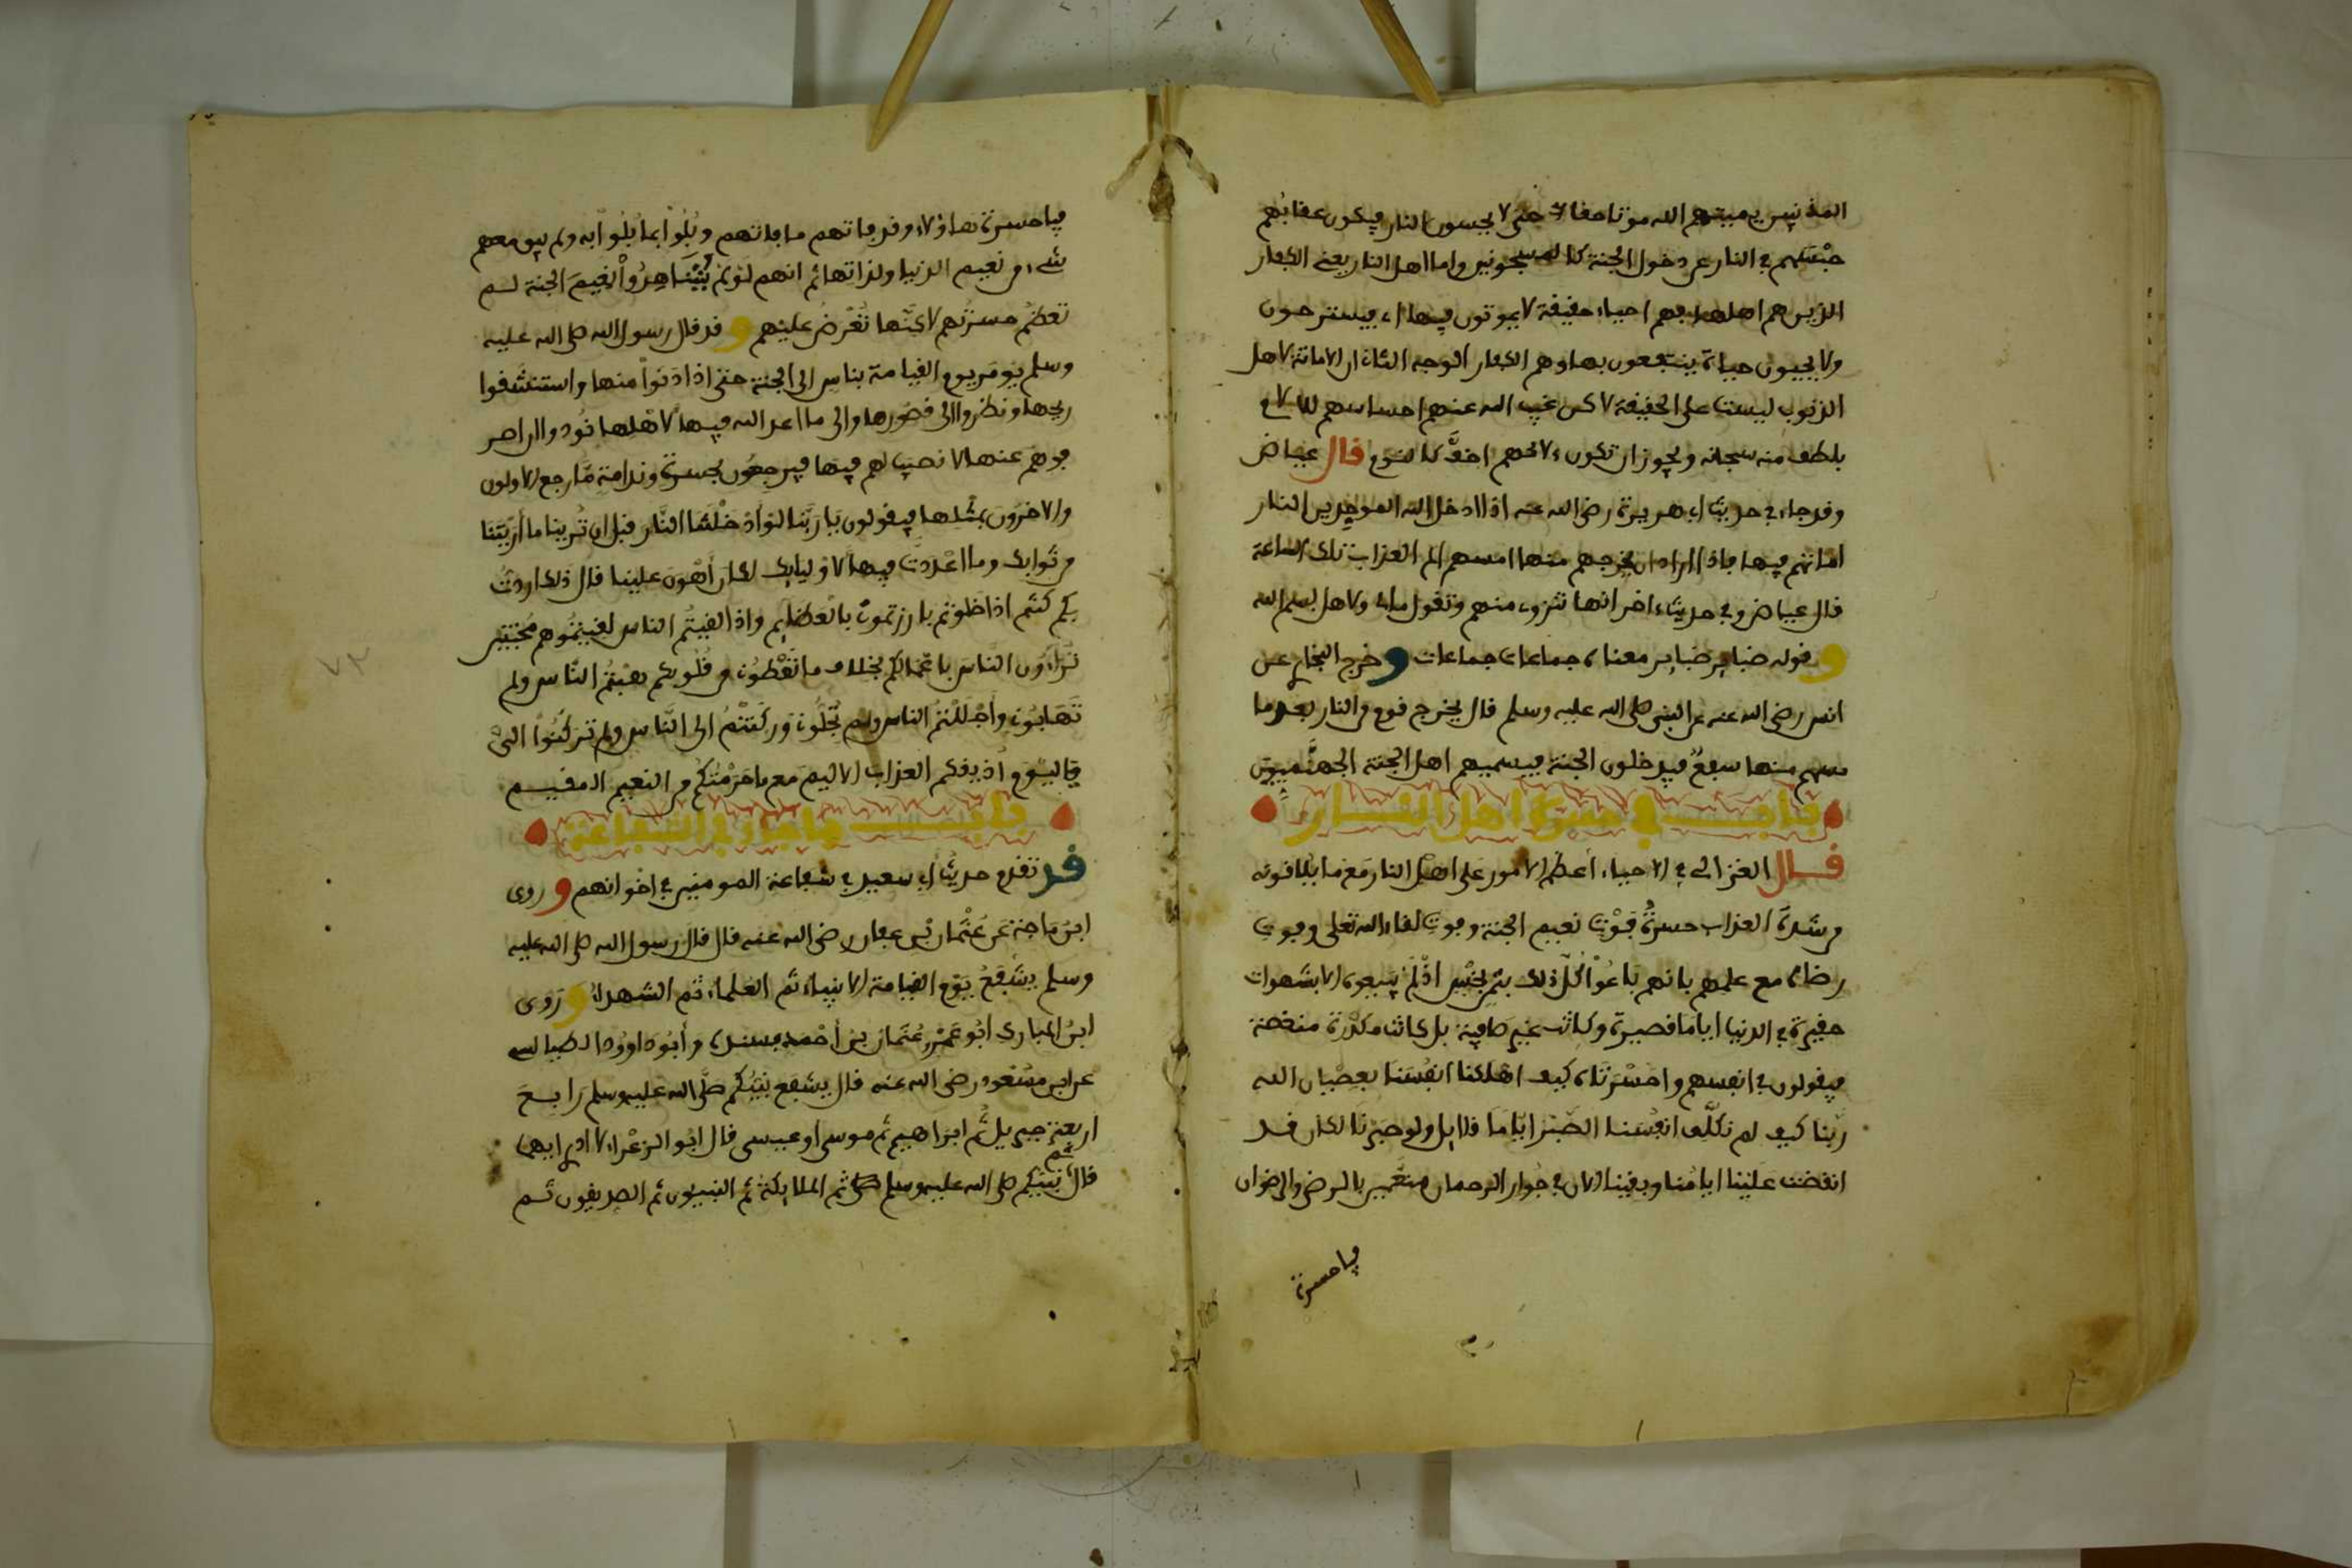 المذنبين يميتهم الله موتا حقا حتى لا يحسون النار فيكون عقابهم
حبسهم في النار عن دخول الجنة كالمسجونين واما اهل النار يعني الكفار
الذين هم اهلها فهم احياء حقيقة لا يموتون فيها اي فيستريحون
ولا يحيون حياة ينتفعون بها وهم الكفار الوجه الثاني ان الاماتة لاهل
الذنوب ليست على الحقيقة لاكن غيب الله عنهم احساسهم للالام
بلطف منه سبحانه ويجوز ان تكون الامهم اخف كالنوم قال عياض
وقد جاء في حديث ابي هريرة رضي الله عنه اذا ادخل الله الموحدين النار
اماتهم فيها فاذا اراد ان يخرجهم منها امسهم الم العذاب تلك الساعة
قال عياض وفي حديث اخر انها تنزوي منهم وتقول مالي ولاهل بسم الله
وقوله ضباير ضباير معناه جماعات جماعات وخرج البخاري عن
انس رضي الله عنه عن النبي صلى الله عليه وسلم قال يخرج قوم من النار بعد ما
مسهم منها سفع فيدخلون الجنة فيسميهم اهل الجنة الجهنميين
باب في حسرة اهل النار
قال الغزالي في الاحياء أعظم الامور على اهل النار مع ما يلاقونه
من شدة العذاب حسرة فوت نعيم الجنة وفوت لقاء الله تعلى وفوت
رضاه مع علمهم بانهم باعوا كل ذلك بثمن بخس اذ لم يبيعوه الا بشهوات
حقيرة في الدنيا اياما قصيرة وكانت غير صافية بل كانت مكدرة منغصة
فيقولون في انفسهم واحسرتاه كيف اهلكنا انفسنا بعصيان الله
ربنا كيف لم نكلف انفسنا الصبر اياما قلايل ولو صبرنا لكان قد
انقضت علينا ايامنا وبقينا الان في جوار الرحمان متنعمين بالرضى والرضوان
فيا حسرة
فيا حسرة هاؤلاء وقد فاتهم ما فاتهم وبلوا بما بلوا به ولم يبق معهم
شيء من نعيم الدنيا ولذاتها ثم انهم لو لم يشاهدوا نعيم الجنة لم
تعظم حسرتهم لاكنها تعرض عليهم وقد قال رسول الله صلى الله عليه
وسلم يومر يوم القيامة بناس الى الجنة حتى اذا دنوا منها واستنشقوا
ريحها ونظروا الى قصورها والى ما اعد الله فيها لاهلها نودوا ان اصر
فوهم عنها لا نصيب لهم فيها فيرجعون بحسرة وندامة ما رجع الاولون
والاخرون بمثلها فيقولون يا ربنا لو ادخلتنا النار قبل ان ترينا ما أريتنا
من ثوابك وما اعددت فيها لاوليايك لكان أهون علينا قال ذلك اردت
بكم كنتم اذا خلوتم بارزتموني بالعظايم واذا لقيتم الناس لقيتموهم مخبتين
تراءون الناس باعمالكم بخلاف ما تعطوني من قلوبكم هبتم الناس ولم
تهابوني وأجللتم الناس ولم تجلوني وركنتم الى الناس ولم تركنوا الي
فاليوم اذيقكم العذاب الاليم مع ما حرمتكم من النعيم المقيم
باب ما جاء في الشفاعة
قد تقدم حديث ابي سعيد في شفاعة المومنين في اخوانهم وروى
ابن ماجة عن عثمان بن عفان رضي الله عنه قال قال رسول الله صلى الله عليه
وسلم يشفع يوم القيامة الانبياء ثم العلماء ثم الشهداء وروى
ابن المبارك ابو عمر عثمان بن أحمد بسنده وأبو داوود الطيالسي
عن ابن مسعود رضي الله عنه قال يشفع نبيكم صلى الله عليه وسلم رابع
اربعة جبريل ثم ابراهيم ثم موسى او عيسى قال ابو الزعراء لا ادري ايهما
قال ثم نبيكم صلى الله عليه وسلم ثم الملايكة ثم النبيون ثم الصديقون ثم
٧٣